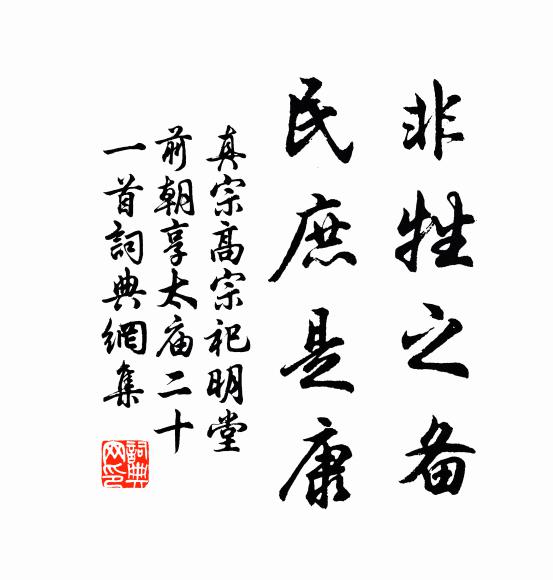 非牲之备
民庶是康
真宗高宗祀明堂
前朝享太庙二十
一首詞典網集
詞典
网印